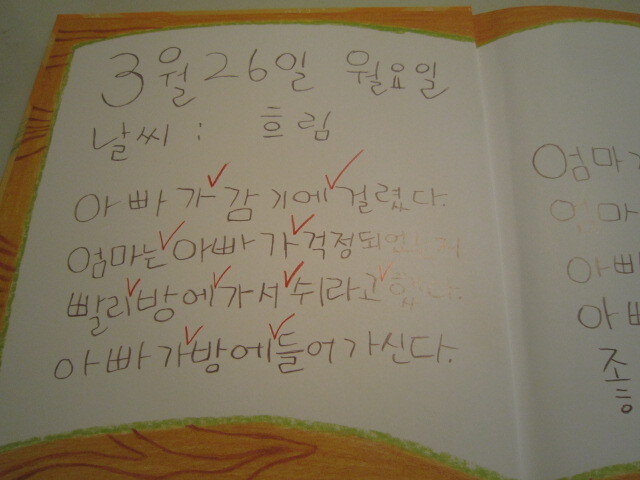 3월 26일 월요일
날씨 : 흐림
아빠가 감기에 걸렸다.
엄마는 아빠가 걱정되었는지
빨리 방에 가서 쉬라고 했다.
아빠가 방에 들어가신다.
엄마
엄마
아빠
아빠